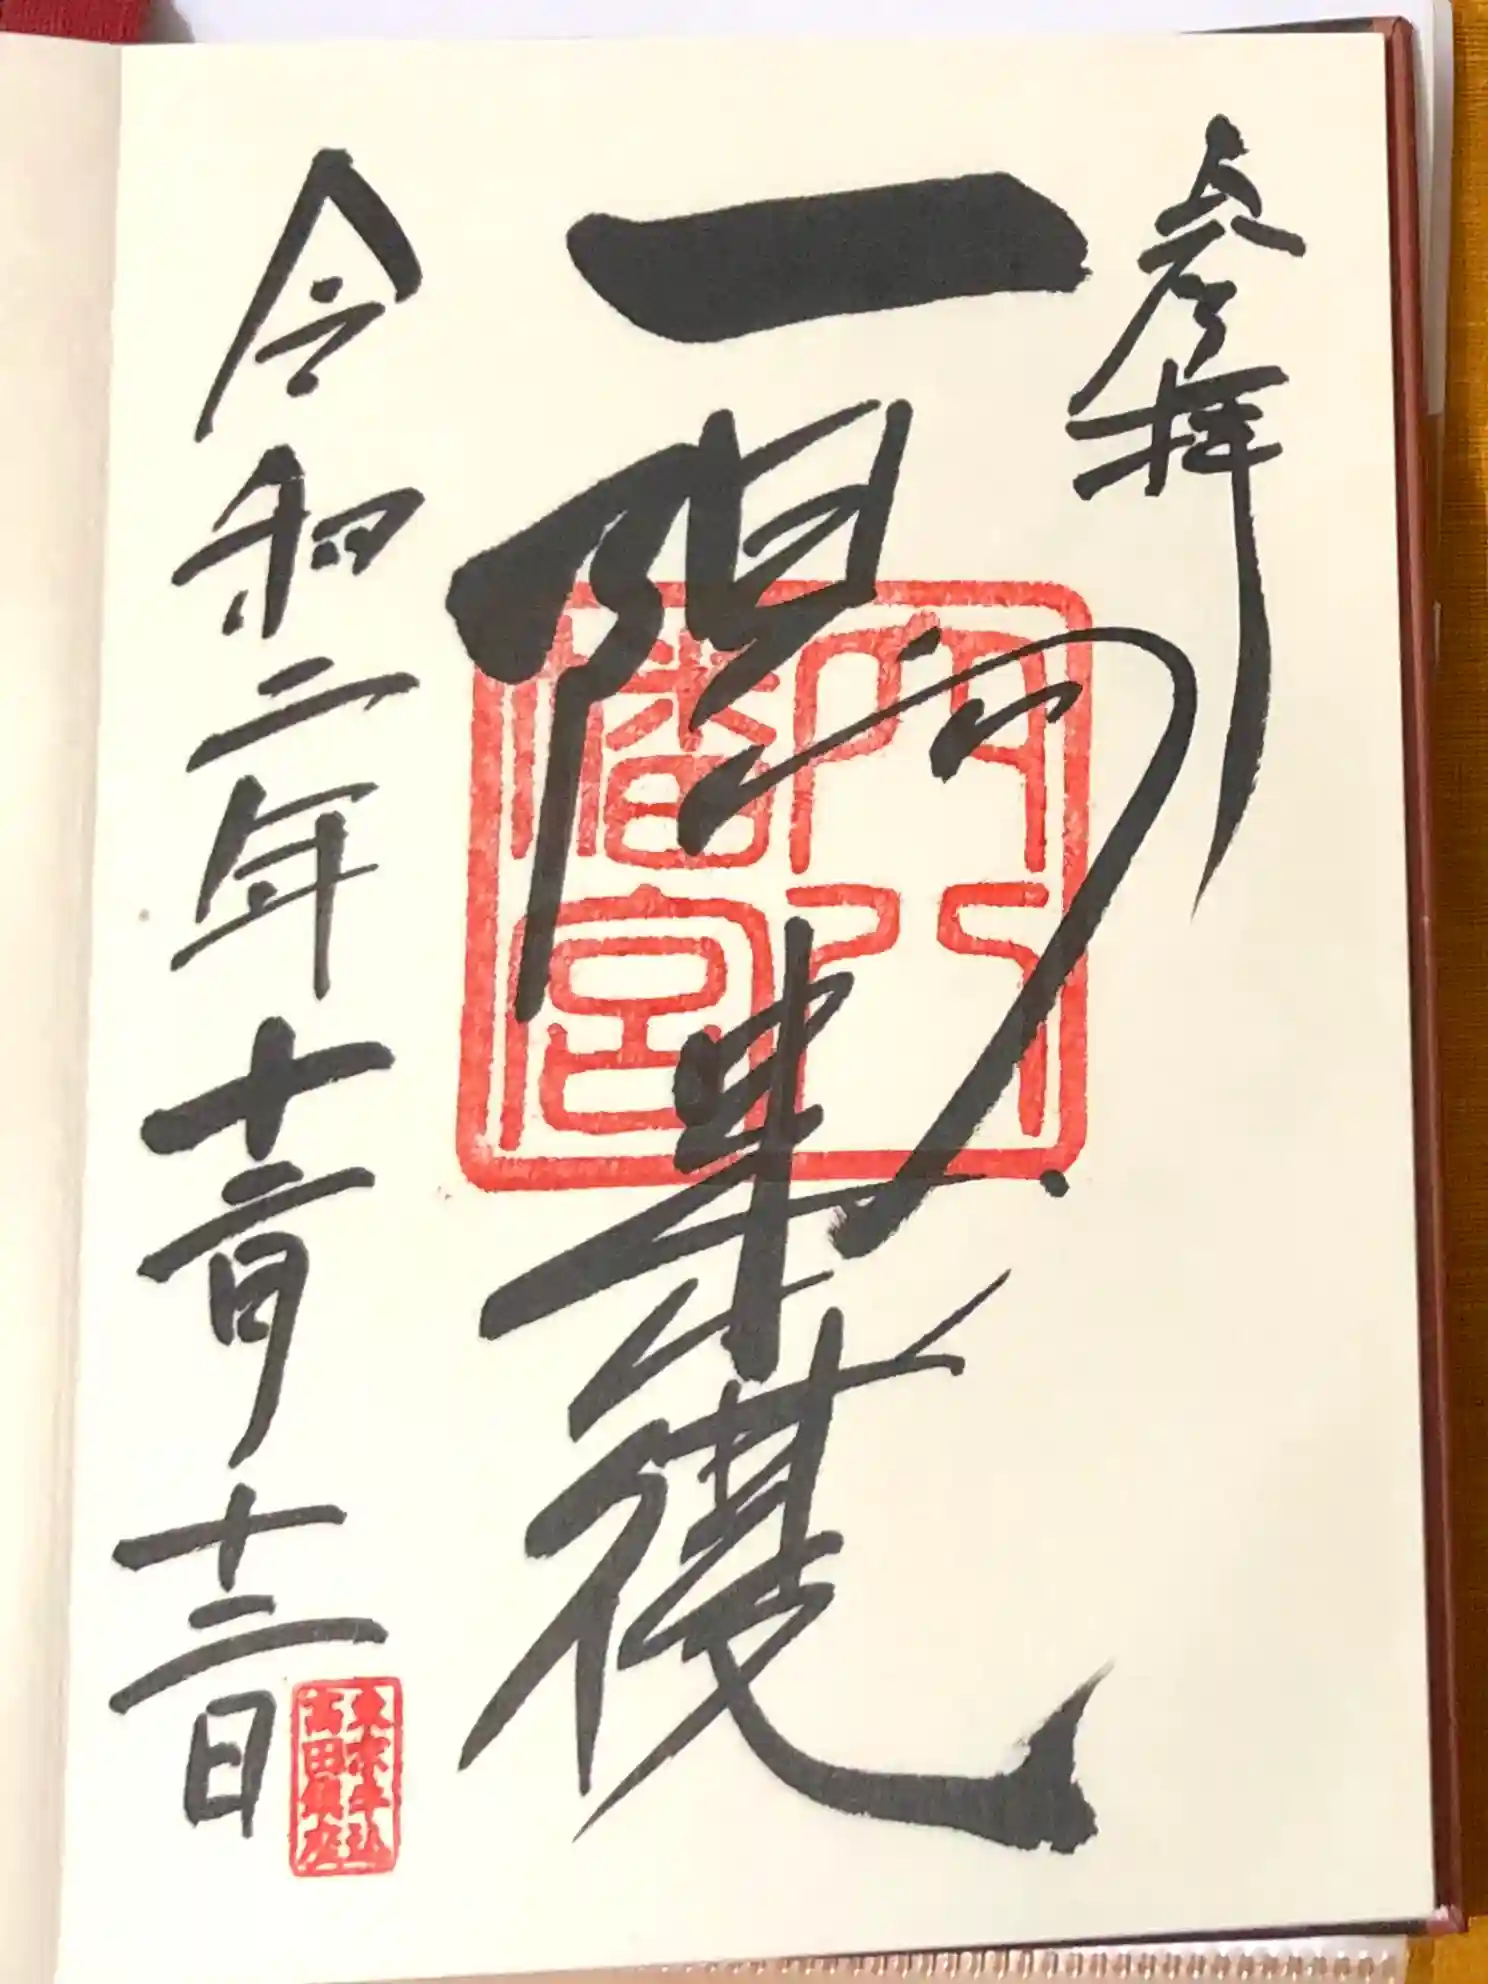 参拝
一陽来復
穴八
幡宮
令和二年十二月十二日
東京牛込
高田鎮座